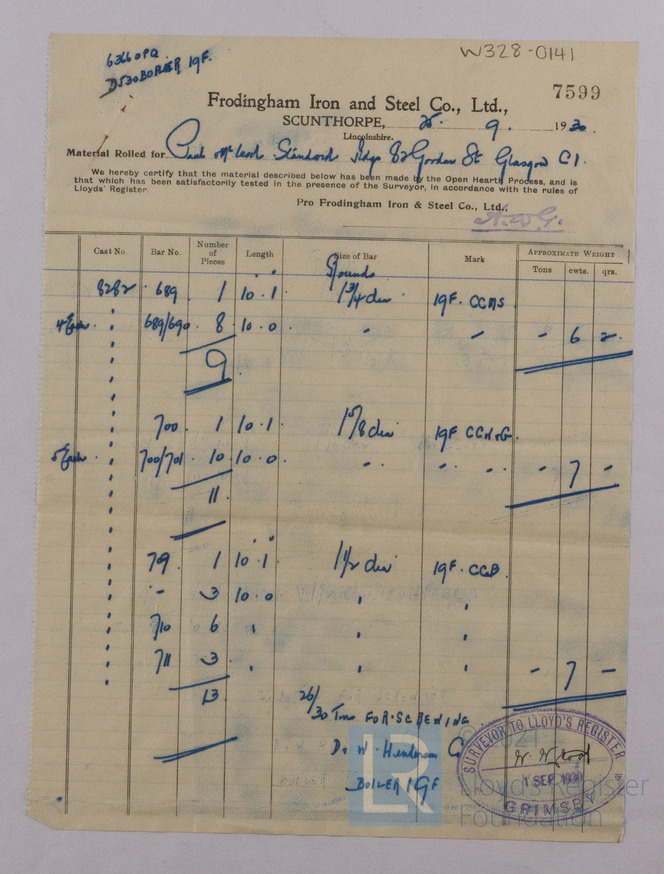 W328-0141
6366 OPQ
D530 BOILER 19F.
7599
Frodingham Iron and Steel Co., Ltd.,
SCUNTHORPE, 25. 9. 1930.
Lincolnshire.
Material Rolled for Paul McLeod Standard Bldgs 82 Gordon St Glasgow C1.
We hereby certify that the material described below has been made by the Open Hearth Process, and is
that which has been satisfactorily tested in the presence of the Surveyor, in accordance with the rules of
Lloyds' Register.
Pro Frodingham Iron & Steel Co., Ltd.,
Cast No. Bar No. Number of Pieces Length Size of Bar Mark APPROXIMATE WEIGHT
Tons cwts. qrs.
Rounds
8282 689 1 10.1 1 3/4 dia 19F. CCMS
4 Each 689/690 8 10.0 " - - 6 2
9
700 1 10.1 1 5/8 dia 19F
5 Each 700/701 10 10.0 " " - 7 -
11
709 1 10.1 1 1/2 dia 19F. CCB
- 3 10.0 " "
710 6 " " "
711 3 " " " - 7 -
13
26/
30 Tons FOR SCREWING
D. W. Henderson G
BOILER 19F
SURVEYOR TO LLOYD'S REGISTER
W. Wood
1 SEP 1930
GRIMSBY
LR
© 2021
Lloyd's Register
Foundation